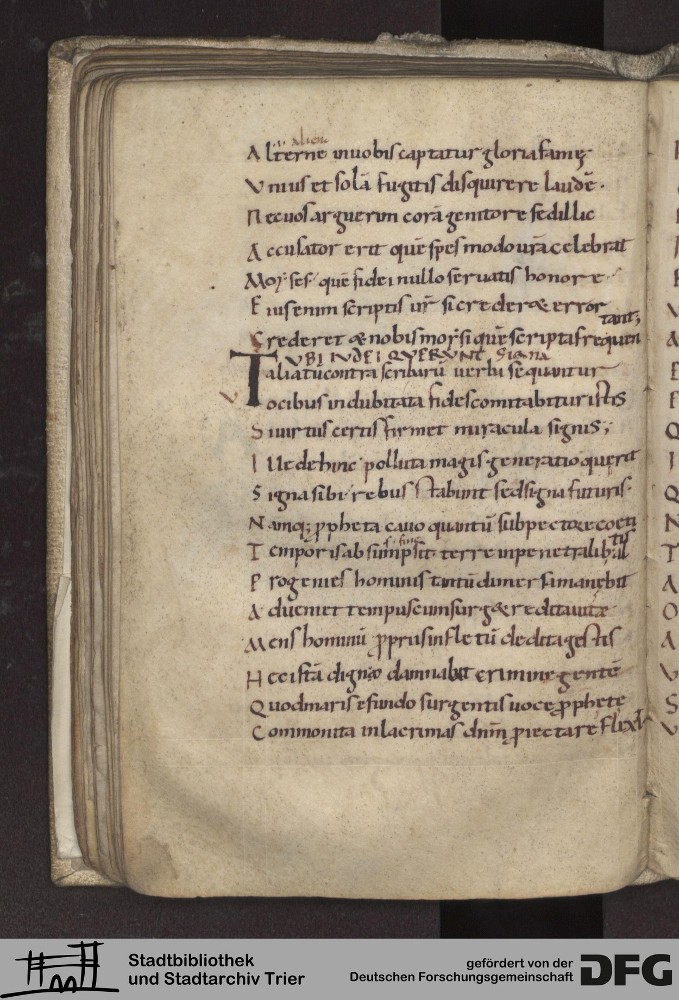 aliene
Alterne in uobis captatur gloria famę
Vnius et solā fugitis disquirere laudē.
Nec uos arguerim corā genitore sed illic
Accusator erit quē spes modo urā celebrat
Moyses quē fidei nullo seruatis honore
Eius enim scriptis ur̄ si crederæ error
tant;
Crederet & nobis moysi quē scripta frequen
VBI IVDEI QVERVNT signa
Talia tū contra scribarū uerba sequuntur
Vocibus indubitata fides comitabitur istis
Si uirtus certis firmet miracula signis;
Ille dehinc polluta magis generatio querit
Signa sibi rebus stabunt sed signa futuris.
Namq; ppheta cauo quantū sub pectore coeti
tus
Temporis absumpsit terre in penetralib;
Progenies hominis tantū dimersa manebit
Adueniet tempus cum surg& reddita uitæ
Mens hominū propriis in fletū dedita gestis
Hec istā digno damnabit crimine gentē
Quod maris e fundo surgentis uoce pphete
Commonita in lacrimas dnm̄ piectare flexit
Stadtbibliothek
und Stadtarchiv Trier
gefördert von der
Deutschen Forschungsgemeinschaft
DFG